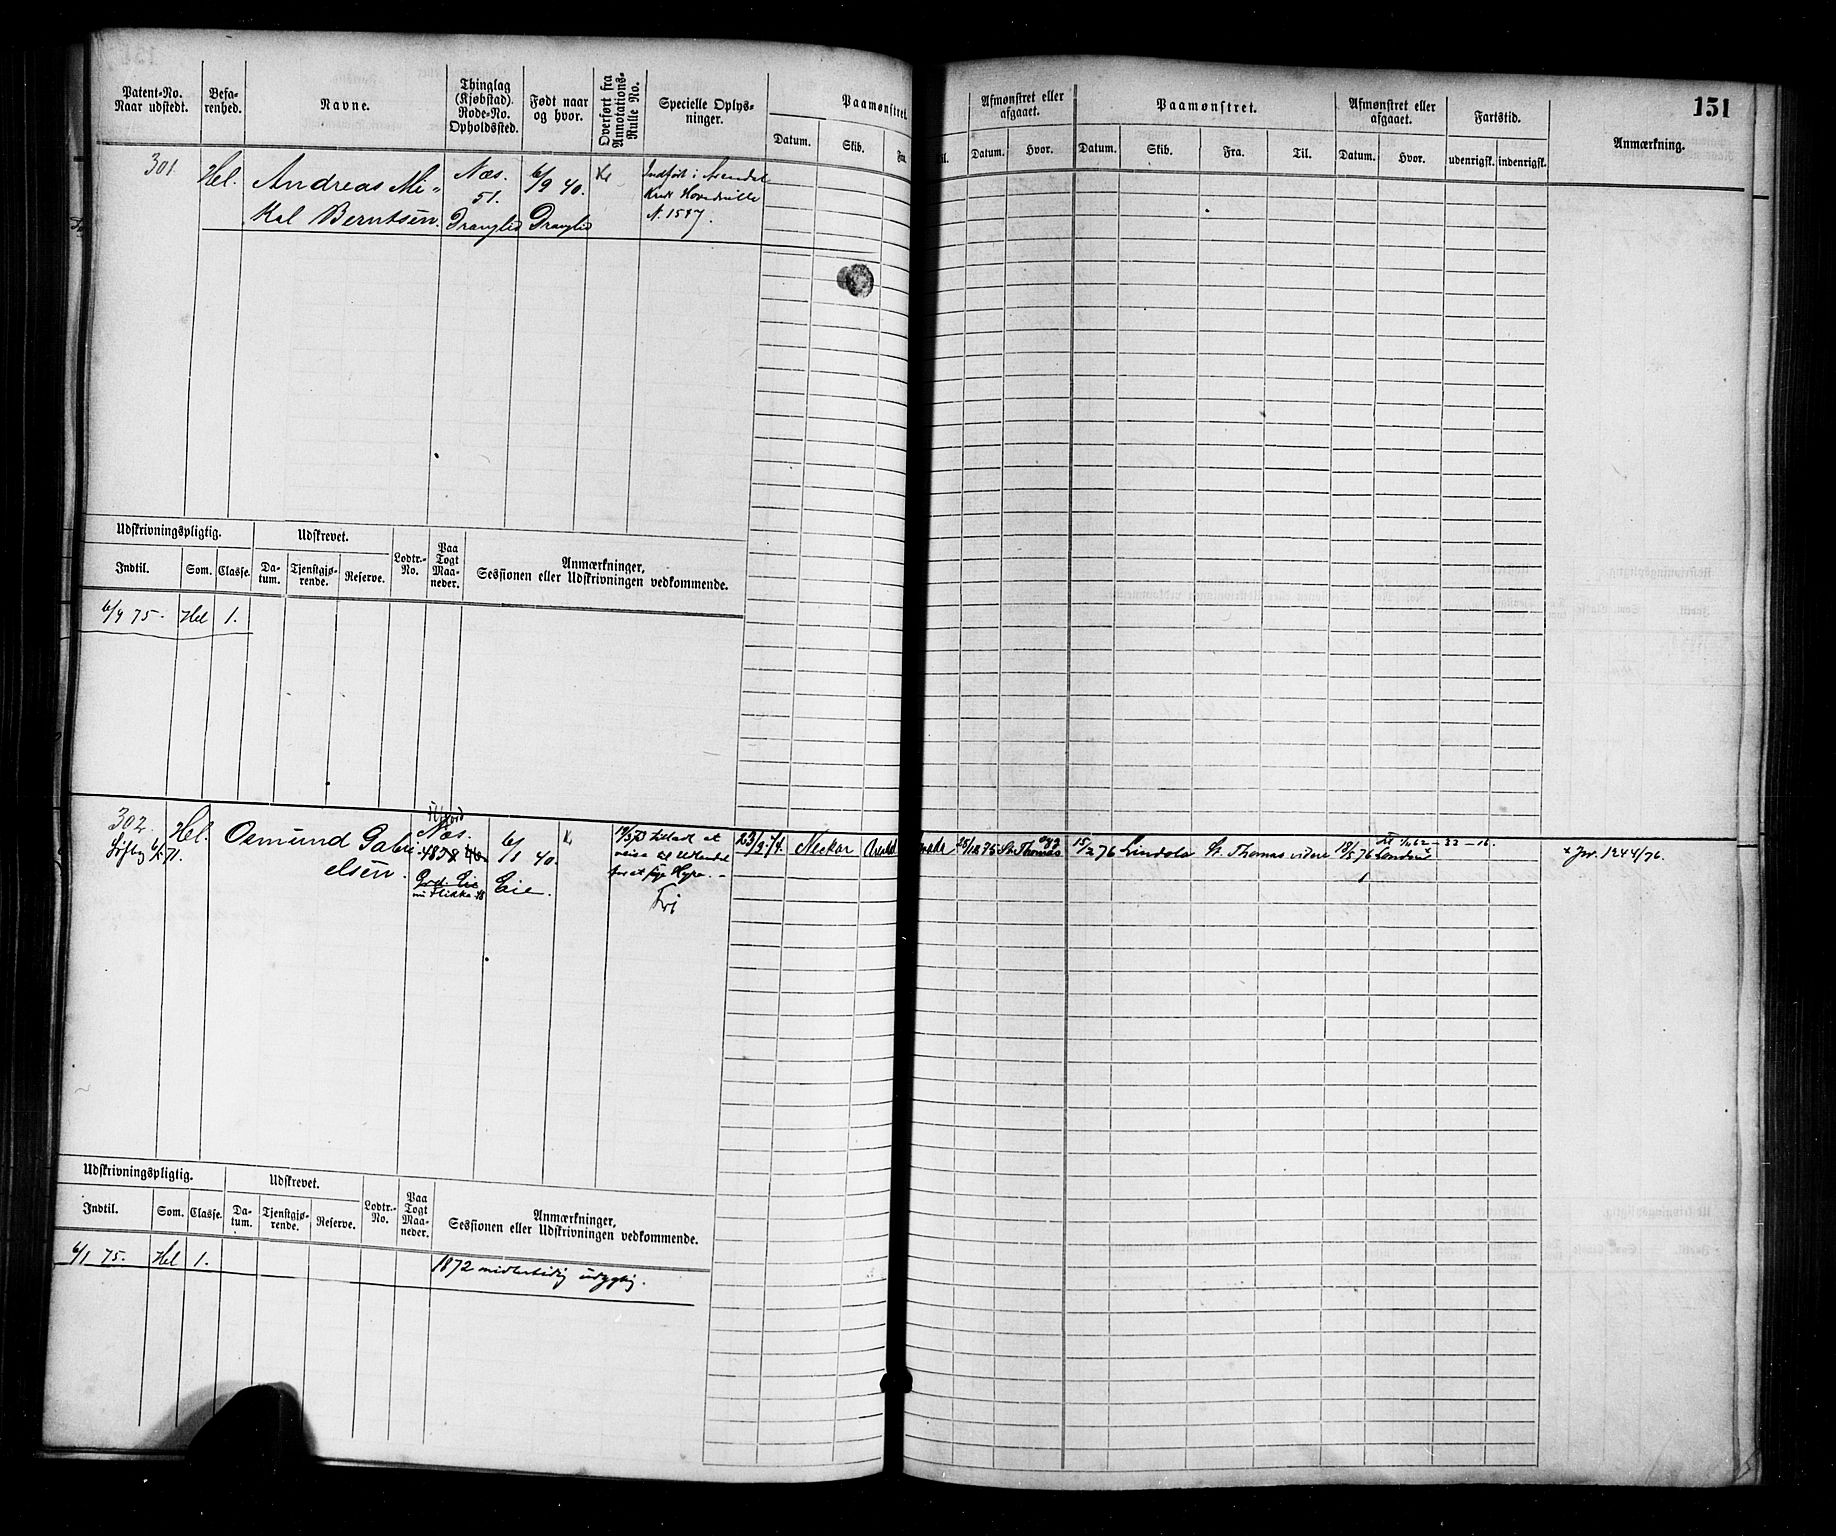 151
Patent-No. Naar udstedt.
Befarenhed.
Navne.
Thinglag (Kjøbstad). Rode-No. Opholdssted.
Født naar og hvor.
Overført fra Annotations-Rulle No.
Specielle Oplysninger.
Paamønstret.
Datum.
Skib.
Fra.
Til.
Afmønstret eller afgaaet.
Datum.
Hvor.
Paamønstret.
Datum.
Skib.
Fra.
Til.
Afmønstret eller afgaaet.
Datum.
Hvor.
Fartstid.
udenrigsk.
indenrigsk.
Anmærkning.
301
Hel.
Andreas Mi-
kal Berntsen.
Næs.
51.
Dranglid
6/9 40.
Dranglid
Indført i Arendal
Hovedrulle
N. 1597.
Udskrivningspligtig.
Udskrevet.
Lodtr.-No.
Paa Togt Maaneder.
Anmærkninger,
Sessionen eller Udskrivningen vedkommende.
Indtil.
Som.
Classe.
Datum.
Tjenstgjørende.
Reserve.
6/9 75.
Hel
1.
302
6/5 71.
Hel.
Osmund Gabri-
elsen.
Næs.
Eie
6/1 40.
Eie.
tilladt at
reise til Udlandet
for at søge Hyre.
Fri
23/2 74.
Neckar
St. Thomas
15/2 76
Lindola
St. Thomas
videre
18/5 76
London
x Jor. 1244/76.
Udskrivningspligtig.
Udskrevet.
Lodtr.-No.
Paa Togt Maaneder.
Anmærkninger,
Sessionen eller Udskrivningen vedkommende.
Indtil.
Som.
Classe.
Datum.
Tjenstgjørende.
Reserve.
6/1 75.
Hel
1.
1872 midlertidig udygtig.